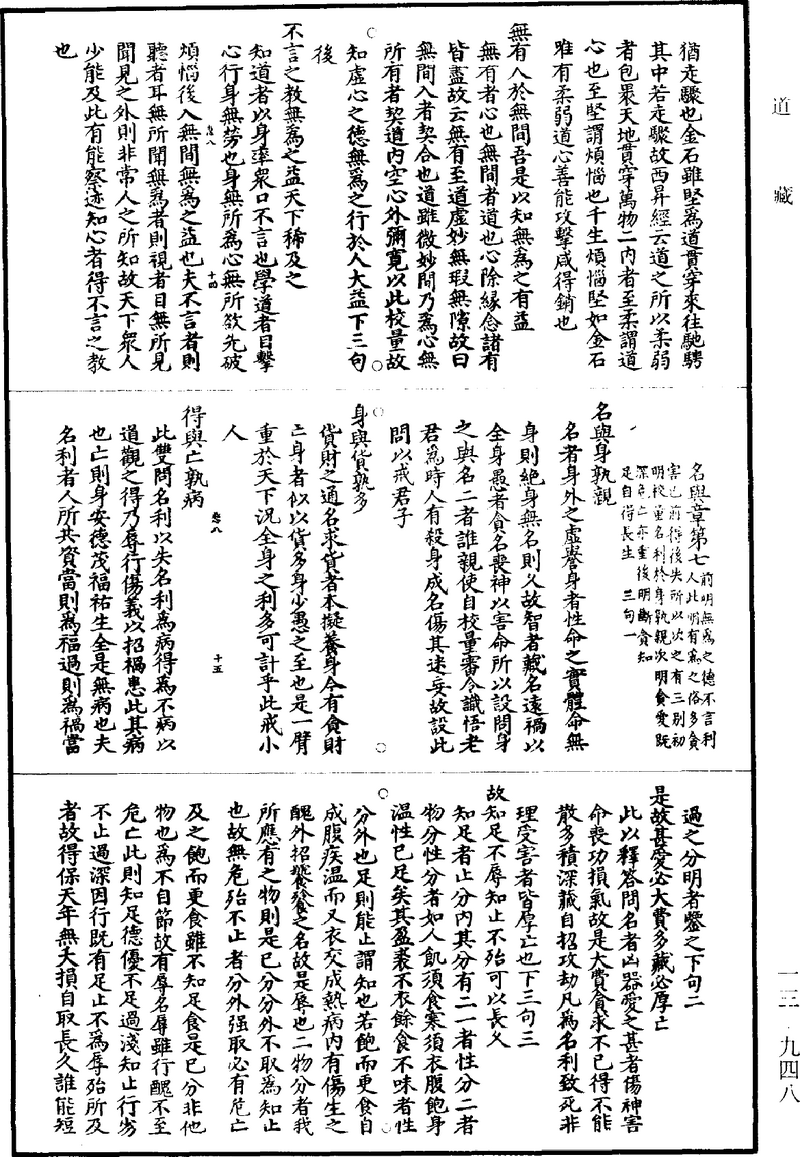 道藏
猶走驟也金石雖堅爲道貫穿來往馳騁
其中若走驟故西昇經云道之所以柔弱
者包裹天地貫穿萬物二内者至柔謂道
心也至堅謂煩惱也千生煩惱堅如金石
唯有柔弱道心善能攻擊咸得銷也
無有入於無間吾是以知無爲之有益
無有者心也無間者道也心除緣念諸有
皆盡故云無有至道虛妙無瑕無隙故曰
無間入者契合也道雖微妙問乃爲心無
所有者契道内空心外彌寬以此校量故
知虛心之德無爲之行於人大益下三句
後
不言之教無爲之益天下稀及之
知道者以身率衆口不言也學道者目擊
心行身無勞也身無所爲心無所欲先破
煩惱後入無間無爲之益也夫不言者則
聽者耳無所聞無爲者則視者目無所見
聞見之外則非常人之所知故天下衆人
少能及此有能察迹知心者得不言之教
也
十四
名與章第七
前明無爲之德不言利
人此明有爲之俗多貪
害也前得後失所以次之有三别初
明校量名利於身孰親次明貪愛既
深危亡亦重後明斷貪知
足自得長生
三句一
名與身孰親
名者身外之虛譽身者性命之實體命無
身則絕身無名則久故智者藏名遠禍以
全身愚者貪名喪神以害命所以設問身
之與名二者誰親使自校量審令識悟老
君爲時人有殺身成名傷其迷妄故設此
問以戒君子
身與貨孰多
貨財之通名求貨者本擬養身今有貪財
亡身者似以貨多身少愚之至也是一臂
重於天下況全身之利多可計乎此戒小
人
得與亡孰病
十五
此雙問名利以失名利爲病得爲不病以
道觀之得乃辱行傷義以招禍患此其病
也亡則身安德茂福祐生全是無病也夫
名利者人所共資當則爲福過則爲禍當
過之分明者鑒之下句二
是故甚愛必大費多藏必厚亡
此以釋答問名者凶器愛之甚者傷神害
命喪功損氣故是大費貪求不已得不能
散多積深藏自招攻劫凡爲名利致死非
理受害者皆厚亡也下三句三
故知足不辱知止不殆可以長久
知足者止分内其分有二一者性分二者
物分性分者如人飢須食寒須衣腹飽身
温性已足矣其盈裘不衣餘食不味者性
分外也足則能止謂知也若飽而更食自
成腹疾温而又衣交成熱病内有傷生之
醜外招饕餮之名故是辱也二物分者我
所應有之物則是已分分外不取爲知止
也故無危殆不止者分外强取必有危亡
及之飽而更食雖不知足食是已分非他
物也爲不自節故有辱名辱雖行醜不至
危亡此則知足德優不足過淺知止行劣
不止過深因行既有足止不爲辱殆所及
者故得保天年無夭損自取長久誰能短
一三·九四八